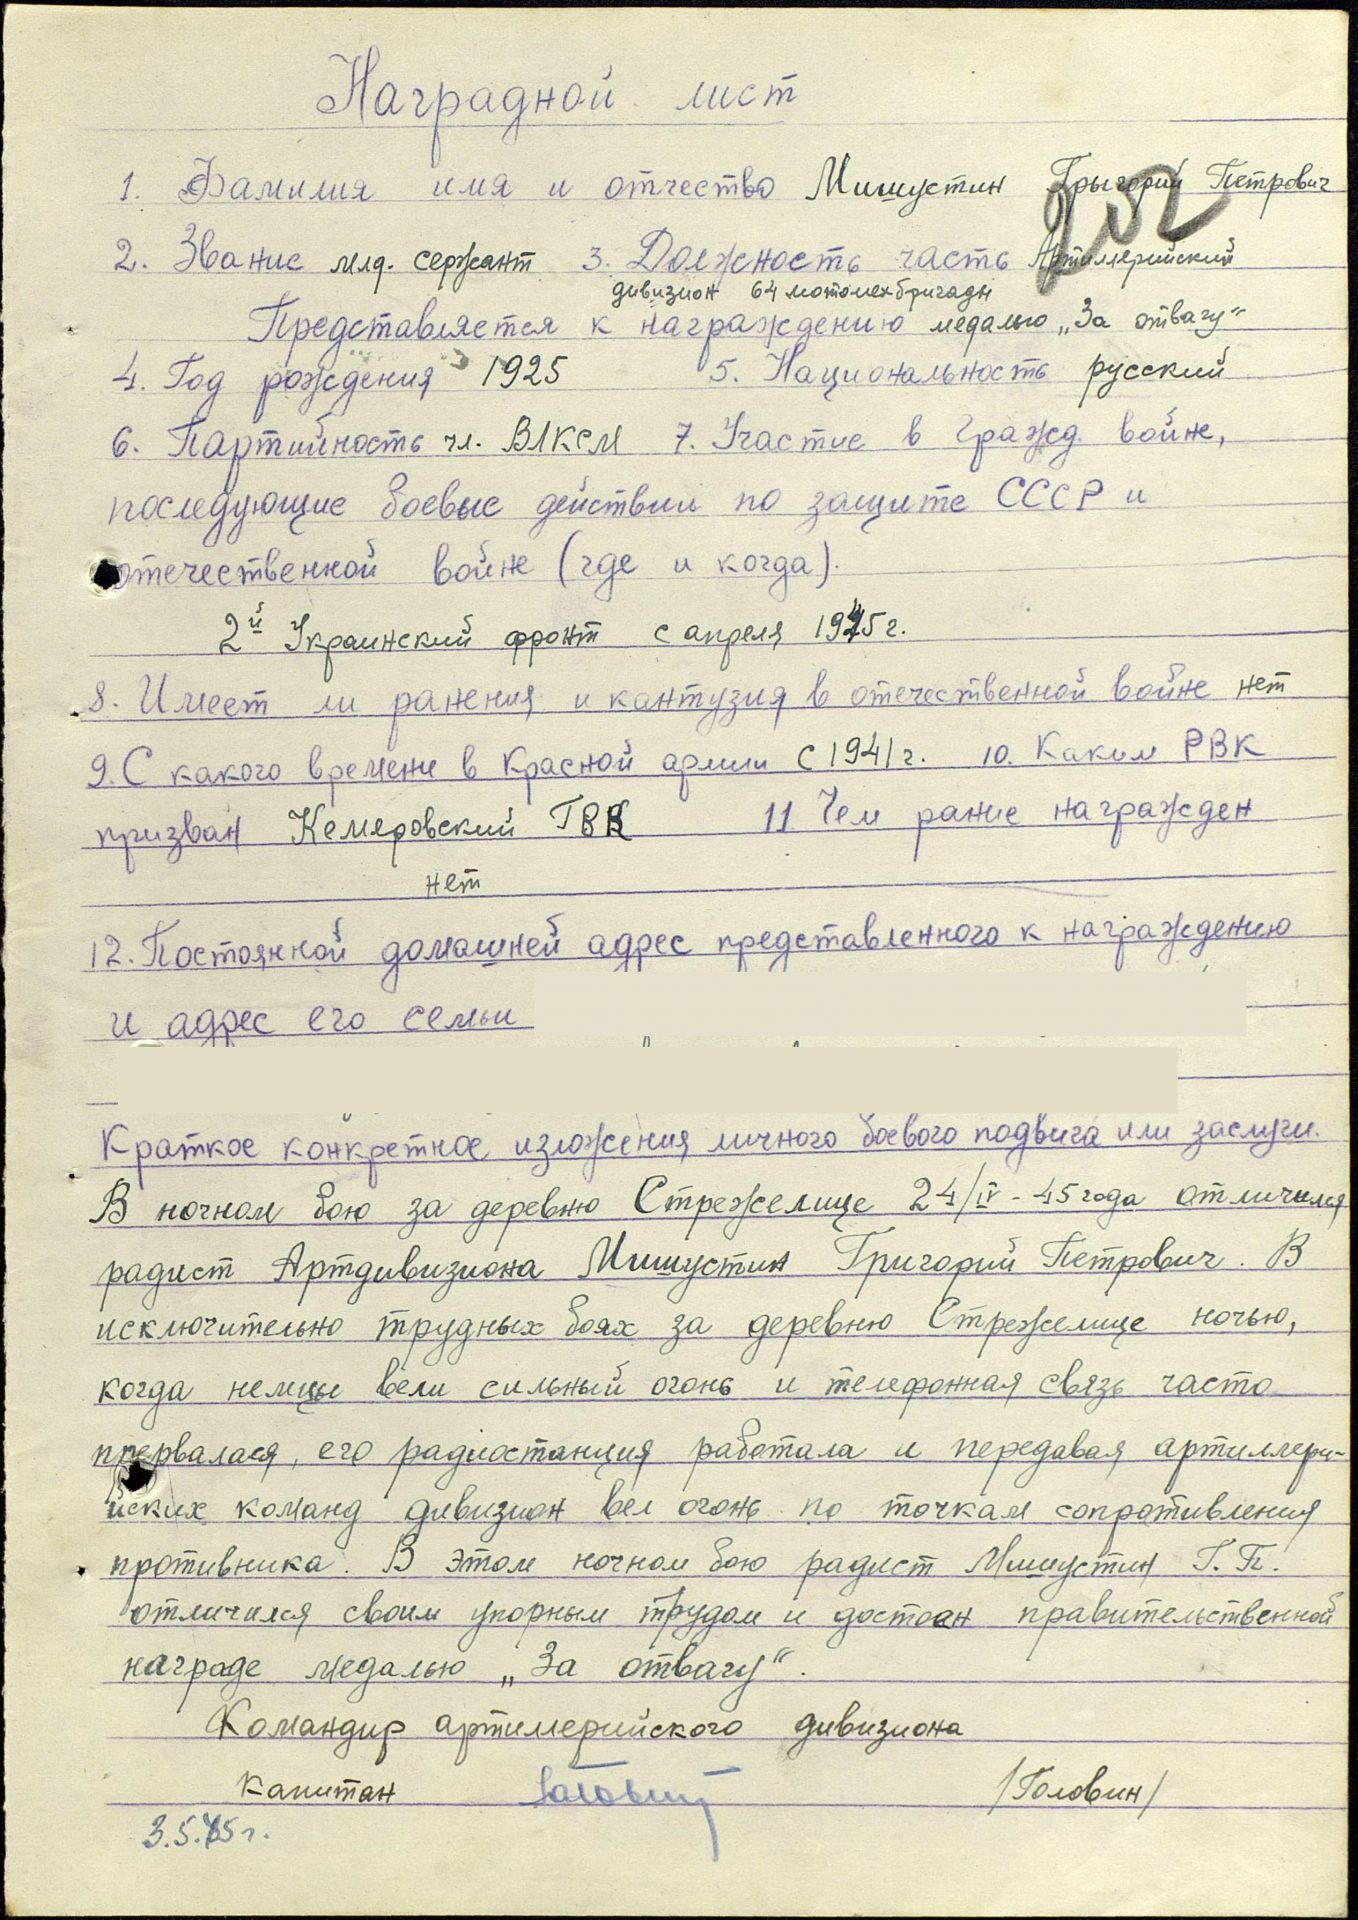 Наградной лист
1. Фамилия имя и отчество Мишустин Грыгорий Петрович
2. Звание млд. сержант 3. Должность часть Артиллерийский
дивизион 64 мотомехбригады
Представляется к награждению медалью „За отвагу“
4. Год рождения 1925 5. Национальность русский
6. Партийность чл. ВЛКСМ 7. Участие в гражд. войне,
последующие боевые действии по защите СССР и
отечественной войне (где и когда).
2й Украинский фронт с апреля 1945г.
8. Имеет ли ранения и кантузия в отечественной войне нет
9. С какого времени в Красной армии с 1941г. 10. Каким РВК
призван Кемеровский ГВК 11 Чем рание награжден
нет
12. Постоянной домашней адрес представленного к награждению
и адрес его семьи
Краткое конкретное изложения личного боевого подвига или заслуги.
В ночном бою за деревню Стрежелице 24/IV-45 года отличился
радист Артдивизиона Мишустин Григорий Петрович. В
исключительно трудных боях за деревню Стрежелице ночью,
когда немцы вели сильный огонь и телефонная связь часто
прервалася, его радиостанция работала и передавая артиллери-
йских команд дивизион вел огонь по точкам сопротивления
противника. В этом ночном бою радист Мишустин Г.П.
отличился своим упорным трудом и достоен правительственной
награде медалью „За отвагу“.
Командир артиллерийского дивизиона
капитан Головин /Головин/
3.5.45г.